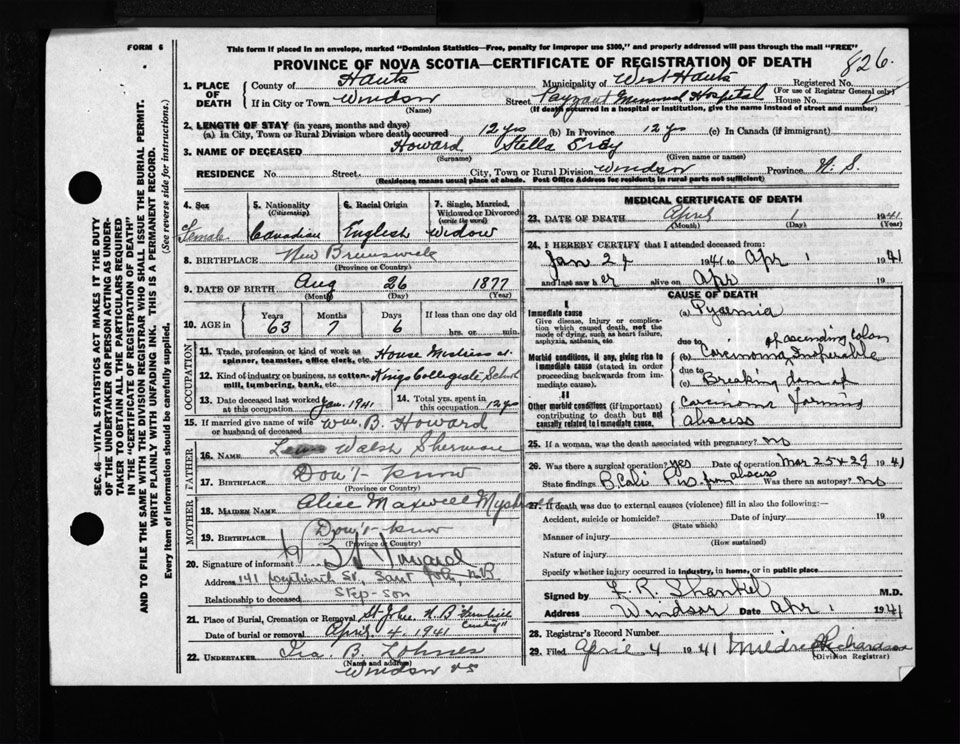 FORM 6
This form if placed in an envelope, marked "Dominion Statistics—Free, penalty for improper use $300," and properly addressed will pass through the mail "FREE"
PROVINCE OF NOVA SCOTIA—CERTIFICATE OF REGISTRATION OF DEATH
826.
1. PLACE OF DEATH
County of Hants Municipality of West Hants Registered No.
(For use of Registrar General only)
If in City or Town Windsor Street Payzant Memorial Hospital House No.
(Name) (If death occurred in a hospital or institution, give the name instead of street and number)
2. LENGTH OF STAY (in years, months and days)
(a) In City, Town or Rural Division where death occurred 12 yrs (b) In Province 12 yrs (c) In Canada (if immigrant)
3. NAME OF DECEASED Howard Stella
(Surname) (Given name or names)
RESIDENCE No. Street. City, Town or Rural Division Windsor Province N. S.
(Residence means usual place of abode. Post Office Address for residents in rural parts not sufficient)
SEC. 46—VITAL STATISTICS ACT MAKES IT THE DUTY
OF THE UNDERTAKER OR PERSON ACTING AS UNDER-
TAKER TO OBTAIN ALL THE PARTICULARS REQUIRED
IN THE "CERTIFICATE OF REGISTRATION OF DEATH"
AND TO FILE THE SAME WITH THE DIVISION REGISTRAR WHO SHALL ISSUE THE BURIAL PERMIT.
WRITE PLAINLY WITH UNFADING INK. THIS IS A PERMANENT RECORD.
Every item of information should be carefully supplied. (See reverse side for instructions.)
4. Sex
Female
5. Nationality
(Citizenship)
Canadian
6. Racial Origin
English
7. Single, Married,
Widowed or Divorced
(write the word)
Widow
8. BIRTHPLACE New Brunswick
(Province or Country)
9. DATE OF BIRTH Aug 26 1877
(Month) (Day) (Year)
10. AGE in
Years Months Days If less than one day old
63 7 6 hrs. or min.
OCCUPATION
11. Trade, profession or kind of work as
spinner, teamster, office clerk, etc. House Mistress at
12. Kind of industry or business, as cotton-
mill, lumbering, bank, etc. Kings Collegiate School
13. Date deceased last worked
at this occupation Jan. 1941
14. Total yrs. spent in
this occupation 12 yrs
15. If married give name of wife
or husband of deceased Wm. B. Howard
FATHER
16. NAME Walsh
17. BIRTHPLACE Don't know
(Province or Country)
MOTHER
18. MAIDEN NAME Alice Maxwell
19. BIRTHPLACE Don't know
(Province or Country)
20. Signature of informant Howard
Address 141 St., Saint John, N.B.
Relationship to deceased Step-son
21. Place of Burial, Cremation or Removal St. John N B
Date of burial or removal April 4. 1941
22. UNDERTAKER Ira. B. Lohnes
(Name and address)
Windsor NS
MEDICAL CERTIFICATE OF DEATH
23. DATE OF DEATH April 1 1941
(Month) (Day) (Year)
24. I HEREBY CERTIFY that I attended deceased from:
Jan 1941 to Apr 1 1941
and last saw her alive on Apr 19
CAUSE OF DEATH
I
Immediate cause (a) Pyaemia
Give disease, injury or complica-
tion which caused death, not the
mode of dying, such as heart failure,
asphyxia, asthenia, etc.
Morbid conditions, if any, giving rise to
immediate cause (stated in order
proceeding backwards from im-
mediate cause).
due to of ascending Colon
(b) Carcinoma Inoperable
due to
(c) Breaking down of
II
Other morbid conditions (if important)
contributing to death but not
causally related to immediate cause.
Carcinoma forming
abscess
25. If a woman, was the death associated with pregnancy? no
26. Was there a surgical operation? yes Date of operation Mar 25 & 29 1941
State findings B. Coli Pus from abscess Was there an autopsy? no
27. If death was due to external causes (violence) fill in also the following:
Accident, suicide or homicide? Date of injury 19
(State which)
Manner of injury
(How sustained)
Nature of injury
Specify whether injury occurred in industry, in home, or in public place
Signed by F. R. Shankel M.D.
Address Windsor Date Apr 1 1941
28. Registrar's Record Number
29. Filed April 4 1941 Mildred Richardson
(Division Registrar)